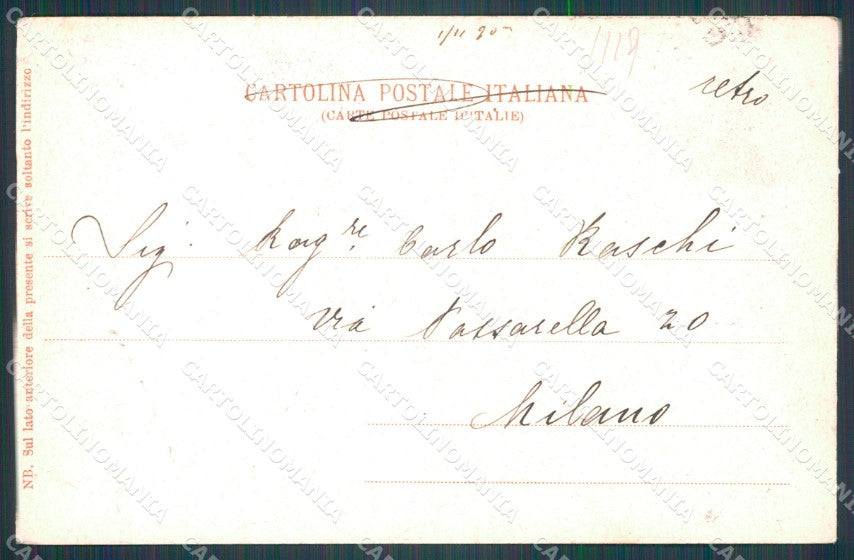 1/11 905
1118
CARTOLINA POSTALE ITALIANA
(CARTE POSTALE D'ITALIE)
retro
NB. Sul lato anteriore della presente si scrive soltanto l'indirizzo
Sig. Rag.re Carlo Raschi
Via Passarella 20
Milano
CARTOLINOMANIA